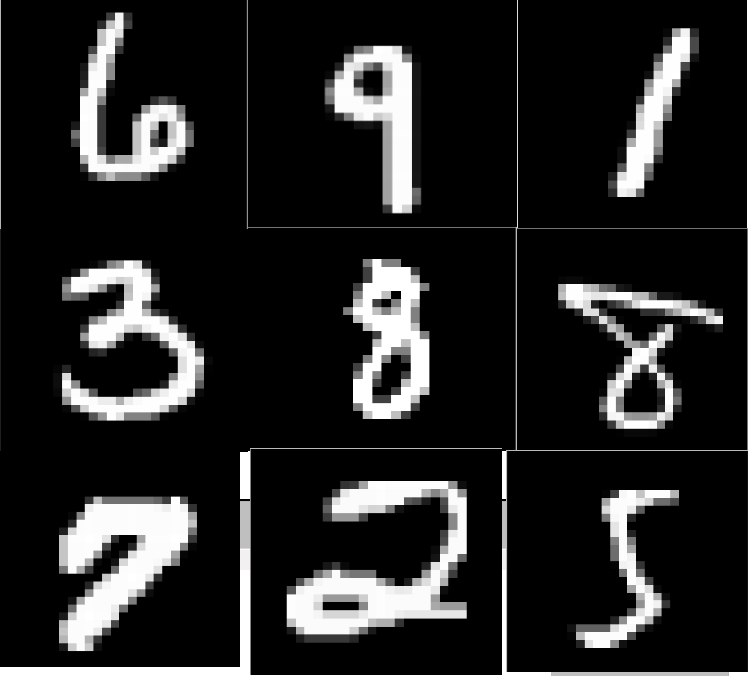 6 9 1
3 8 8
7 2 5